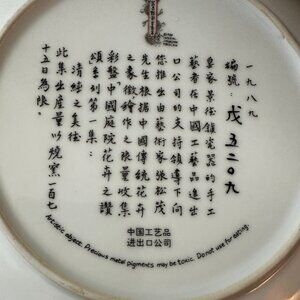 一九八九
編號：戊五二〇九
皇家景德鎮瓷器的手工
藝者在中國工藝品進出
口公司的支持領導下向
您推出由藝術家張松茂
先生根據中國傳統花卉
之象徵繪作之限量收集
彩盤“中國庭院花卉之讚
頌”系列第一集：
清經之美德
此集出產量以燒窯一百七
十五日為限。
中国工艺品
进出口公司
Artistic object. Precious metal pigments may be toxic. Do not use for eating.